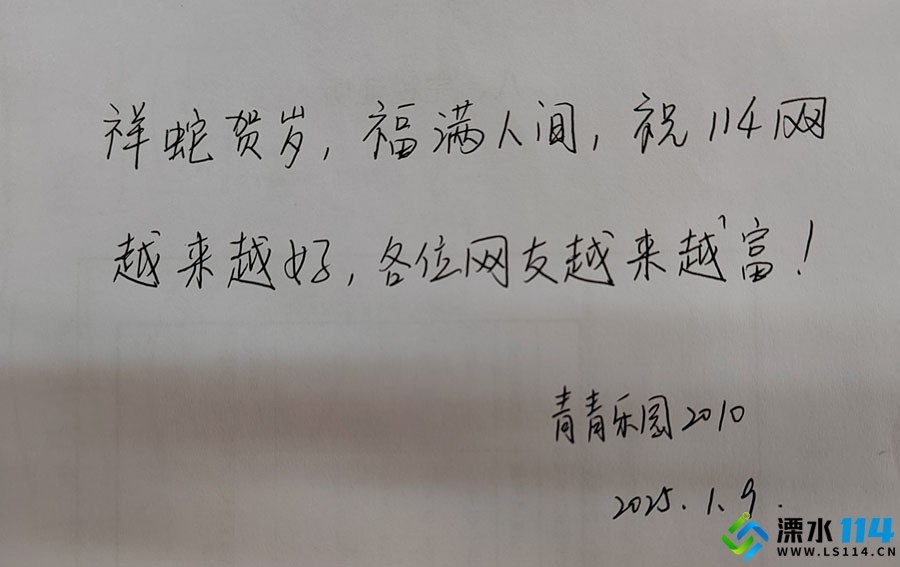 祥蛇贺岁，福满人间，祝114网
越来越好，各位网友越来越富！
青青乐园2010
2025.1.9.
溧水114
WWW.LS114.CN